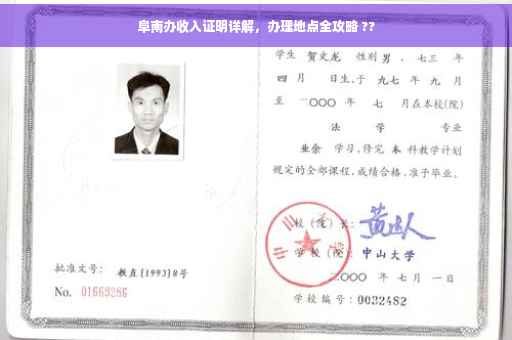 阜南办收入证明详解，办理地点全攻略 ??
学生 贺文龙 性别 男，七三 年
四 月 日生，于 九七 年 九 月
至 二〇〇〇 年 七 月在本校(院)
法 学 专业
业余 学习，修完 本 科教学计划
规定的全部课程，成绩合格，准予毕业。
校（院）长：
学 校（院）： 中山大学
二〇〇〇 年 七 月 一 日
批准文号： 教直[1993]8号
No. 01669286
学校编号：0032482